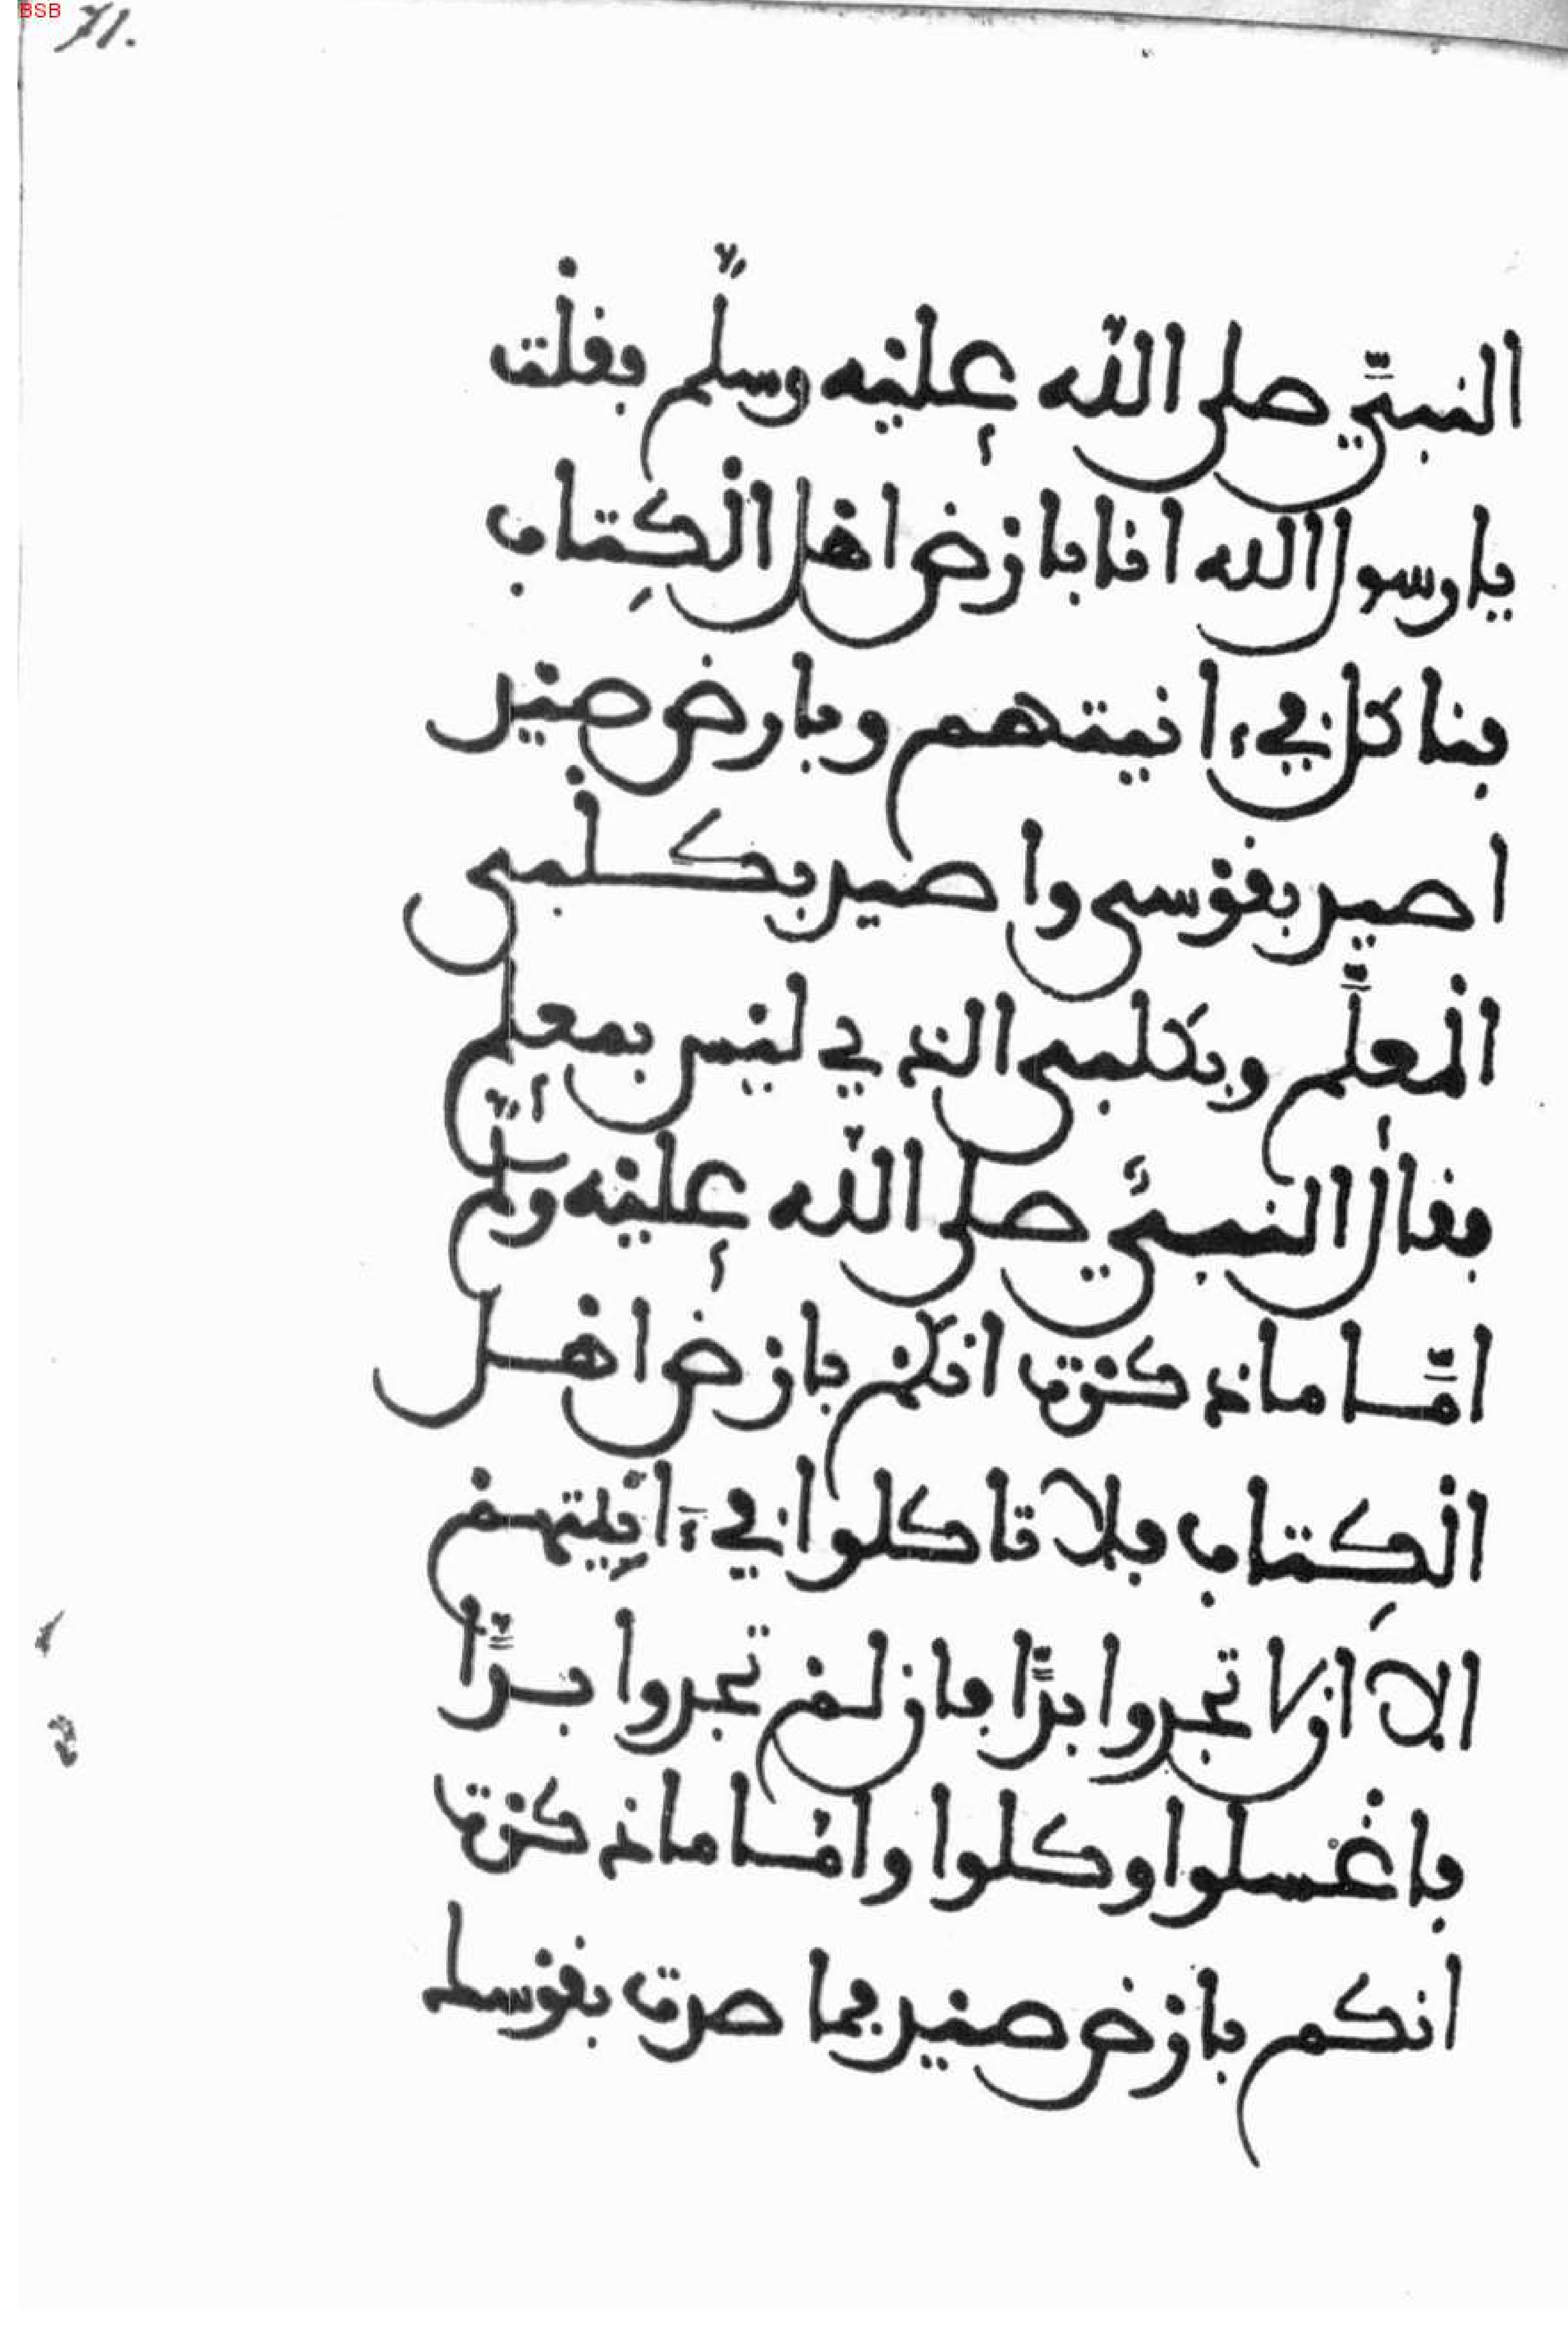 BSB
71.
النبيّ صلى اللّه عليْه وسلّم فقلْت
يا رسول الله انا بارْض اهْل الْكِتاب
فناكل في ءانيتهم وبارض صيْد
اصيد بقوْسي واصيد بكلْبي
الْمعلَّم وبكلبي الذي ليْس بمعلم
فقال النبيُّ صلى اللّه عليْه وسلّم
امَّا ما ذكرْت انكمْ بارْض اهْل
الْكِتاب فلا تاكلوا في ءانِيتهمْ
الا ان لا تجدوا بدًّا فان لمْ تجدوا بدًّا
فاغْسلوا وكلوا وامَّا ما ذكرْت
انكم بارْض صيْد فما صدت بقوْسك